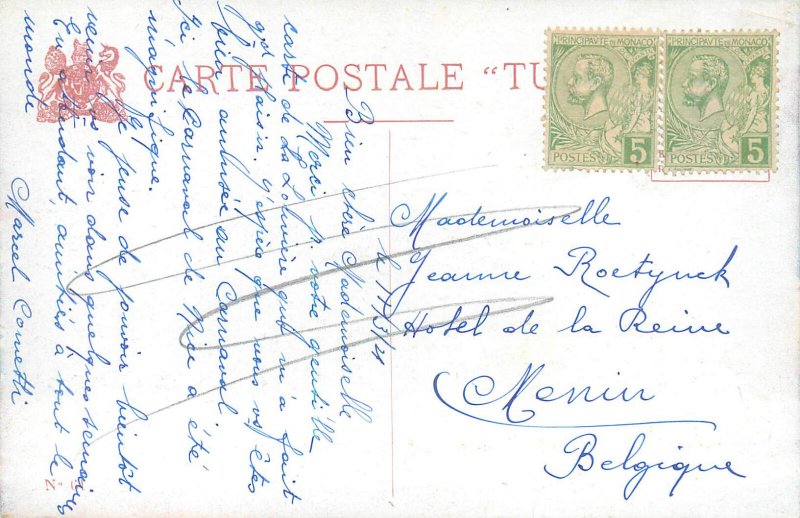 CARTE POSTALE "TU
PRINCIPAUTÉ DE MONACO
POSTES 5
PRINCIPAUTÉ DE MONACO
POSTES 5
le 11/3/21
Bien chère Mademoiselle
Merci pr votre gentille
carte de La Louvière qui m'a fait
gd plaisir. J'espère que vous vs êtes
bien amusée au Carnaval
Ici le Carnaval de Nice a été
magnifique.
Je pense de pouvoir bientôt
venir vs voir dans quelques semaines
En attendant, amitiés à tout le
monde
Marcel Cometti
Mademoiselle
Jeanne Roetynck
Hotel de la Reine
Menin
Belgique